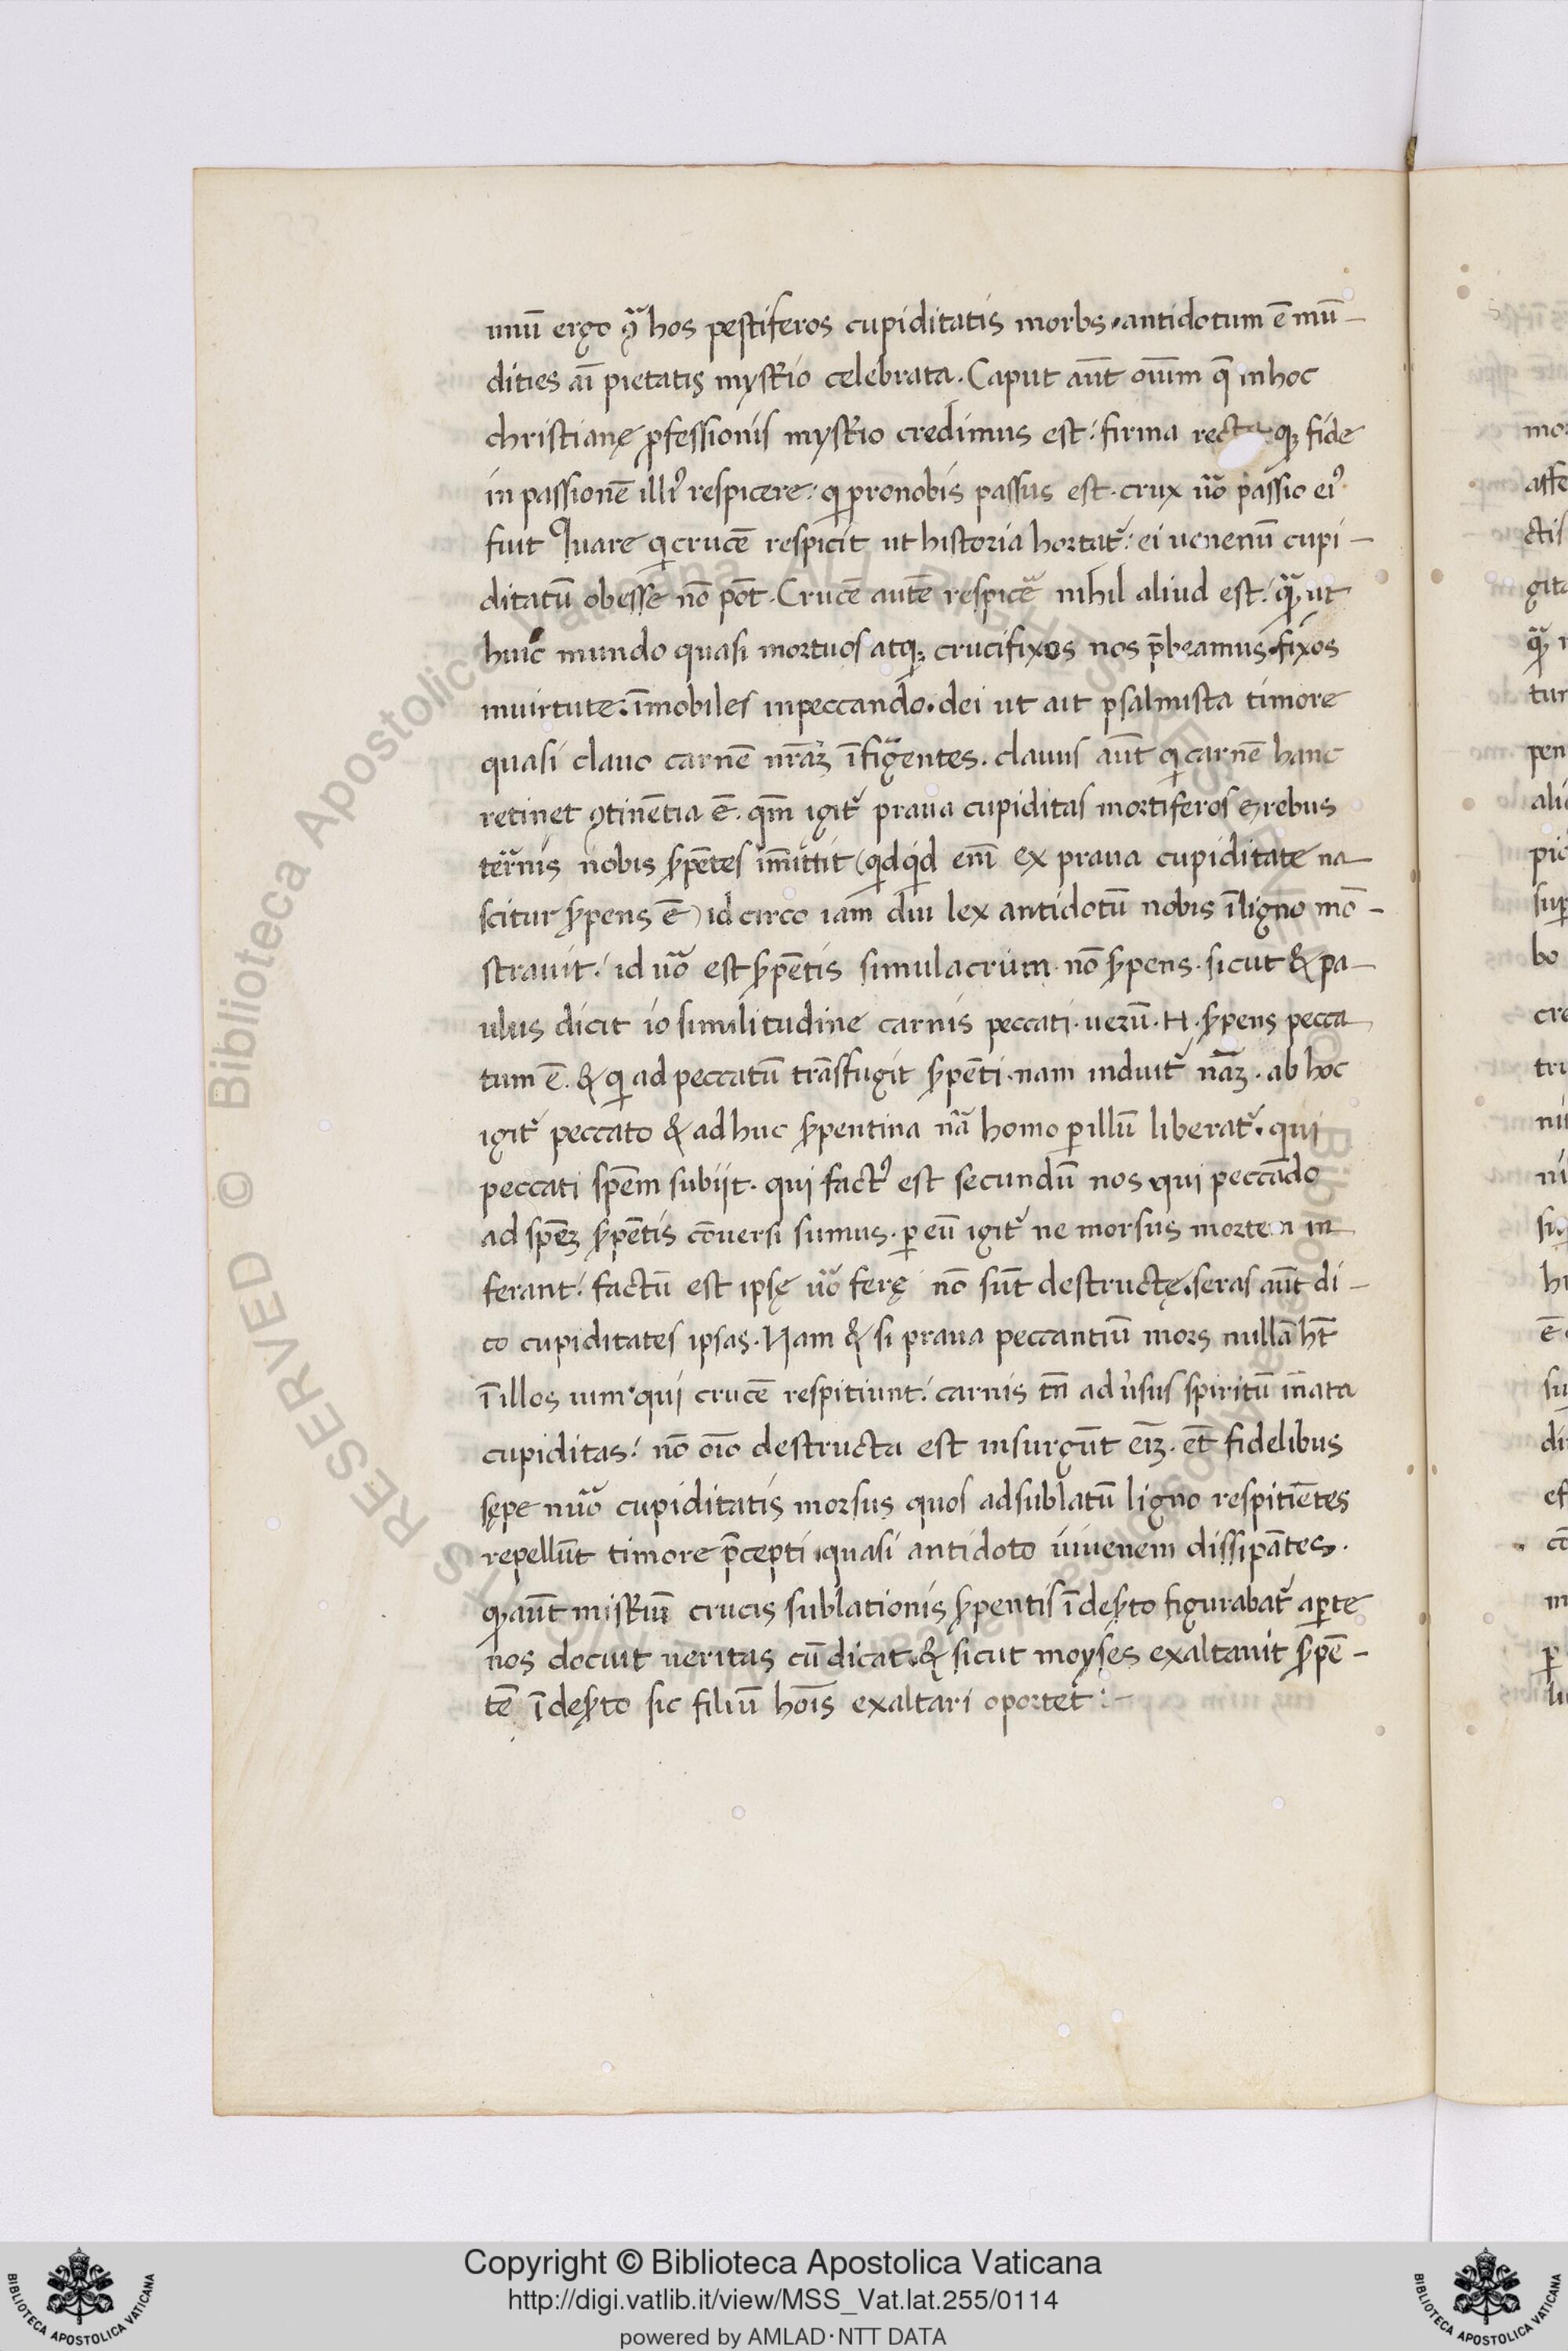 unū ergo ꝯͣ hos pestiferos cupiditatis morbs · antidotum ē mū–
dities aī pietatis mysṫio celebrata. Caput aūt oīum q̄ in hoc
christianę ꝓfessionis mysṫio credimus est: firma recta qꝫ fide
in passionē illiꝰ respicere: q pro nobis passus est. crux ūo passio eiꝰ
fuit Quare q crucē respicit ut historia hortat᷑: ei uenenū cupi–
ditatū obesse nō pōt. Crucē autē respicē nihil aliud est: qͣꝫ ut
huic mundo quasi mortuos atqꝫ crucifixos nos p̄beamus. fixos
in uirtute: īmobiles in peccando. dei ut ait psalmista timore
quasi clauo carnē nr̄aꝫ īfigentes. clauus aūt q carnē hanc
retinet ꝯtinētia ē. qm̄ igit᷑ praua cupiditas mortiferos & rebus
ternis nobis ẜpētes īmittit (qdqd eni̅ ex praua cupiditate na–
scitur ẜpens ē) id circo iam diu lex antidotū nobis ī ligno mō–
strauit: id ūo est ẜpētis simulacrum. nō ẜpens. sicut & pa–
ulus dicit io similitudine carnis peccati. uerū .N. ẜpens pecca
tum ē. & q ad peccatū trāsfugit ẜpēti nam induit᷑ nāꝫ. ab hoc
igit᷑ peccato & ad huc ẜpentina nā homo ꝑ illū liberat᷑. qui
peccati spēm subijt. qui factꝰ est secundū nos qui peccādo
ad spēꝫ ẜpētis cōuersi sumus. ꝑ eū igit᷑ ne morsus mortem in
ferant: factū est ipsę ūo ferę nō sūt destructę. feras aūt di–
co cupiditates ipsas. Nam & si praua peccantiū mors nullā hr̄t
ī illos uim qui crucē respitiunt: carnis tn̄ aduersus spiritū īnata
cupiditas: nō oīo destructa est insurgūt eīꝫ. et̄ fidelibus
sępenūo cupiditatis morsus quos ad sublatū ligno respitiētes
repellūt timore p̄cepti quasi antidoto uiuenem dissipātes.
qꝫ aūt misṫiū crucis sublationis ẜpentis ī deẜto figurabat᷑ aꝑte
nos docuit ueritas cū dicat. & sicut moyses exaltauit ẜpē–
tē ī deẜto sic filiū hoīs exaltari oportet :–
Copyright © Biblioteca Apostolica Vaticana
http://digi.vatlib.it/view/MSS_Vat.lat.255/0114
powered by AMLAD·NTT DATA